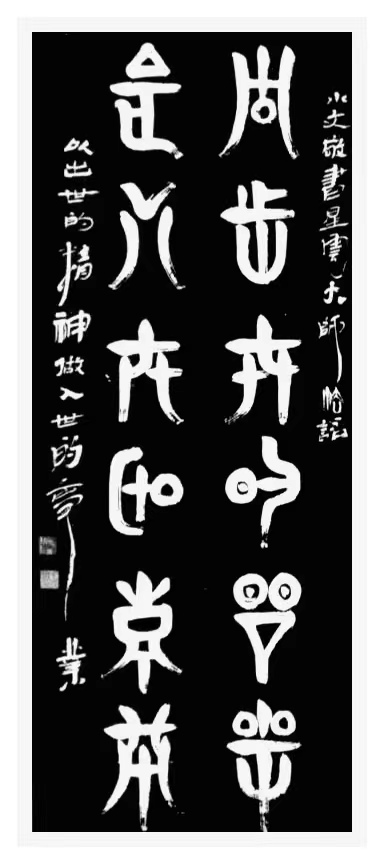 小文敬書星雲大師語
以出世的精神
做入世的事業
以出世的精神做入世的事業